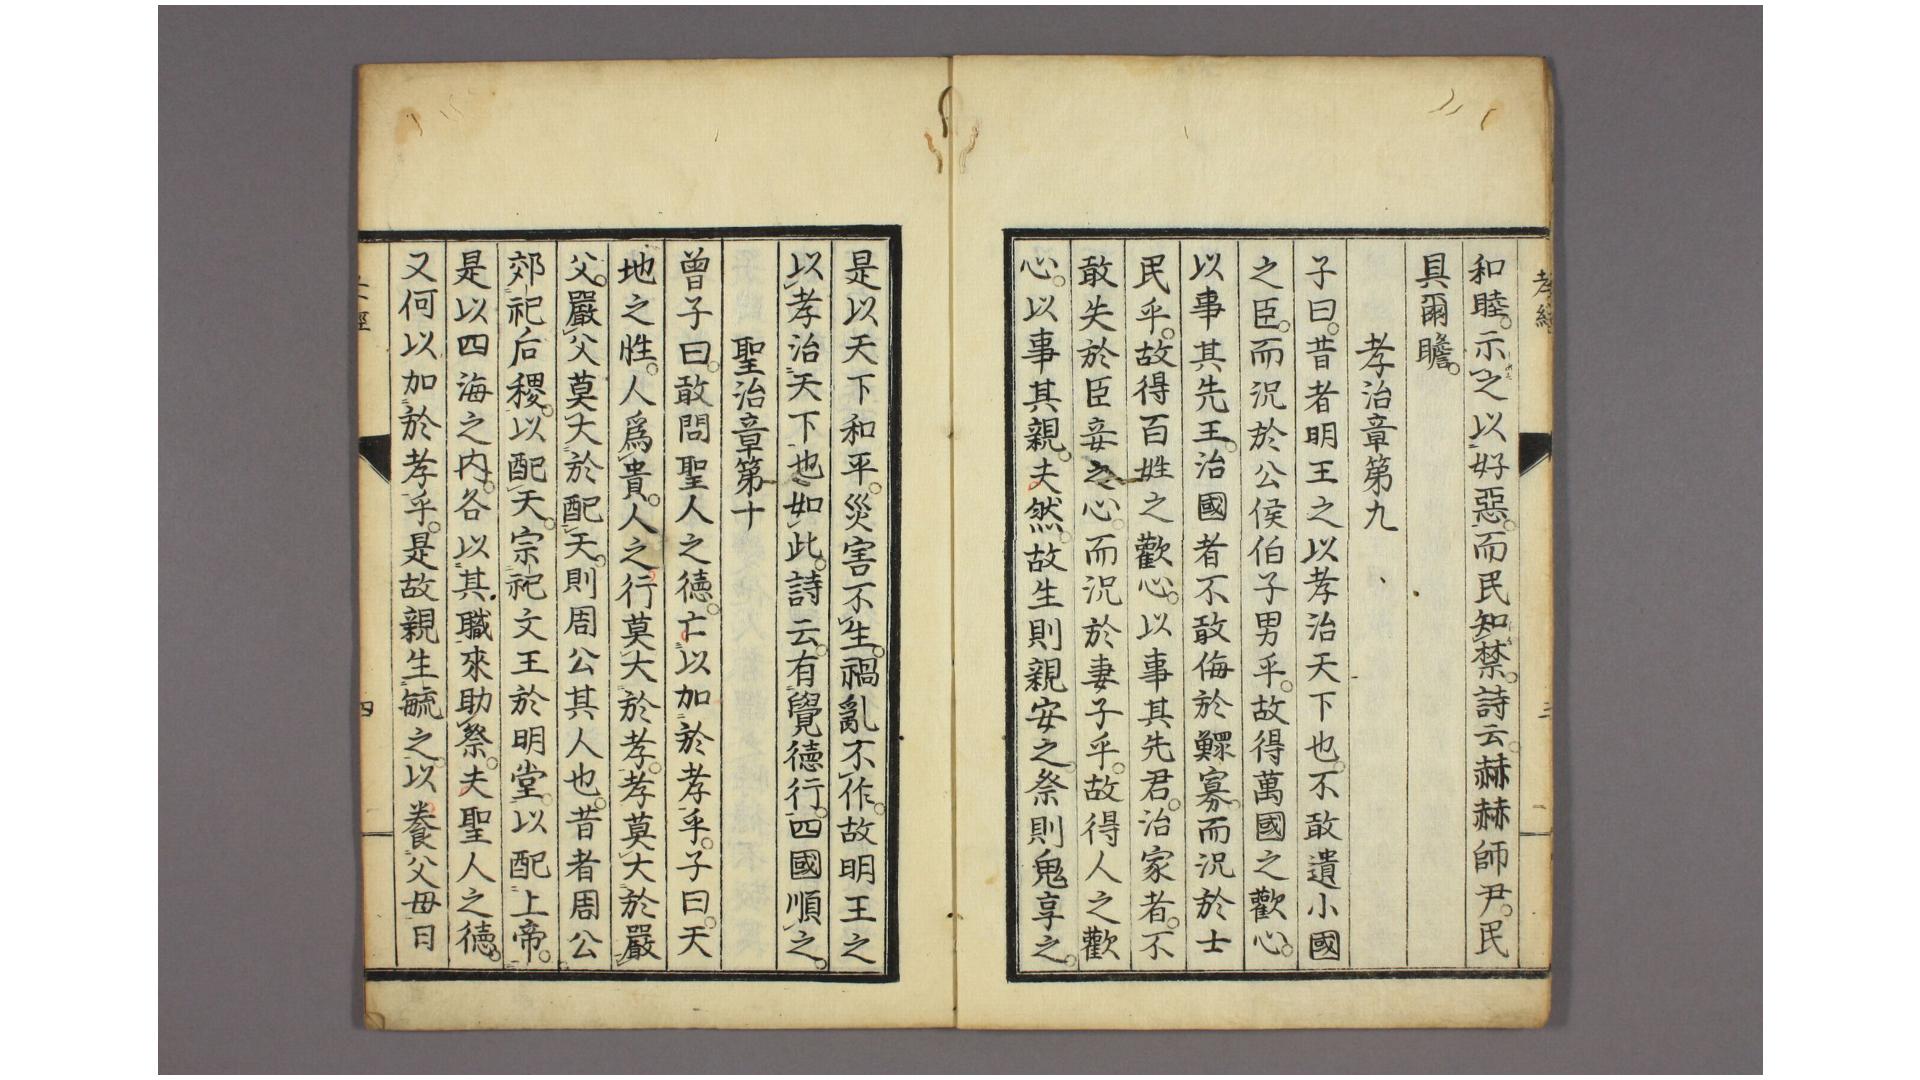 孝經
和睦。示之以好惡。而民知禁。詩云。赫赫師尹。民
具爾瞻。
孝治章第九
子曰。昔者明王之以孝治天下也。不敢遺小國
之臣。而況於公侯伯子男乎。故得萬國之歡心。
以事其先王。治國者不敢侮於鰥寡。而況於士
民乎。故得百姓之歡心。以事其先君。治家者。不
敢失於臣妾之心。而況於妻子乎。故得人之歡
心。以事其親。夫然。故生則親安之。祭則鬼享之。
是以天下和平。災害不生。禍亂不作。故明王之
以孝治天下也如此。詩云。有覺德行。四國順之。
聖治章第十
曾子曰。敢問聖人之德。亡以加於孝乎。子曰。天
地之性。人爲貴。人之行莫大於孝。孝莫大於嚴
父。嚴父莫大於配天。則周公其人也。昔者周公
郊祀后稷。以配天。宗祀文王於明堂。以配上帝。
是以四海之內。各以其職來助祭。夫聖人之德。
又何以加於孝乎。是故親生毓之。以養父母日
四